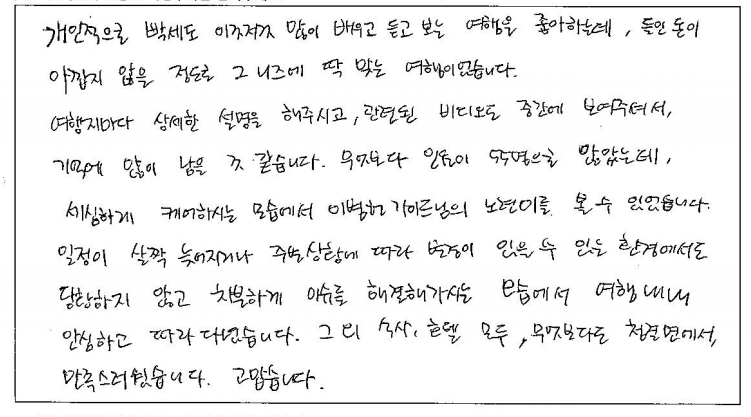 개인적으로 빡세도 이것저것 많이 배우고 듣고 보는 여행을 좋아하는데, 들인 돈이
아깝지 않을 정도로 그 니즈에 딱 맞는 여행이었습니다.
여행지마다 상세한 설명을 해주시고, 관련된 비디오도 중간에 보여주셔서,
기억에 많이 남을 것 같습니다. 무엇보다 인원이 으로 많았는데,
세심하게 케어하시는 모습에서 가이드님의 노련미를 볼 수 있었습니다.
일정이 살짝 늦어지거나 주변상황에 따라 변경이 있을 수 있는 환경에서도
당황하지 않고 차분하게 이슈를 해결해가시는 모습에서 여행 내내
안심하고 따라다녔습니다. 그 외 식사, 호텔 모두, 무엇보다도 청결면에서,
만족스러웠습니다. 고맙습니다.